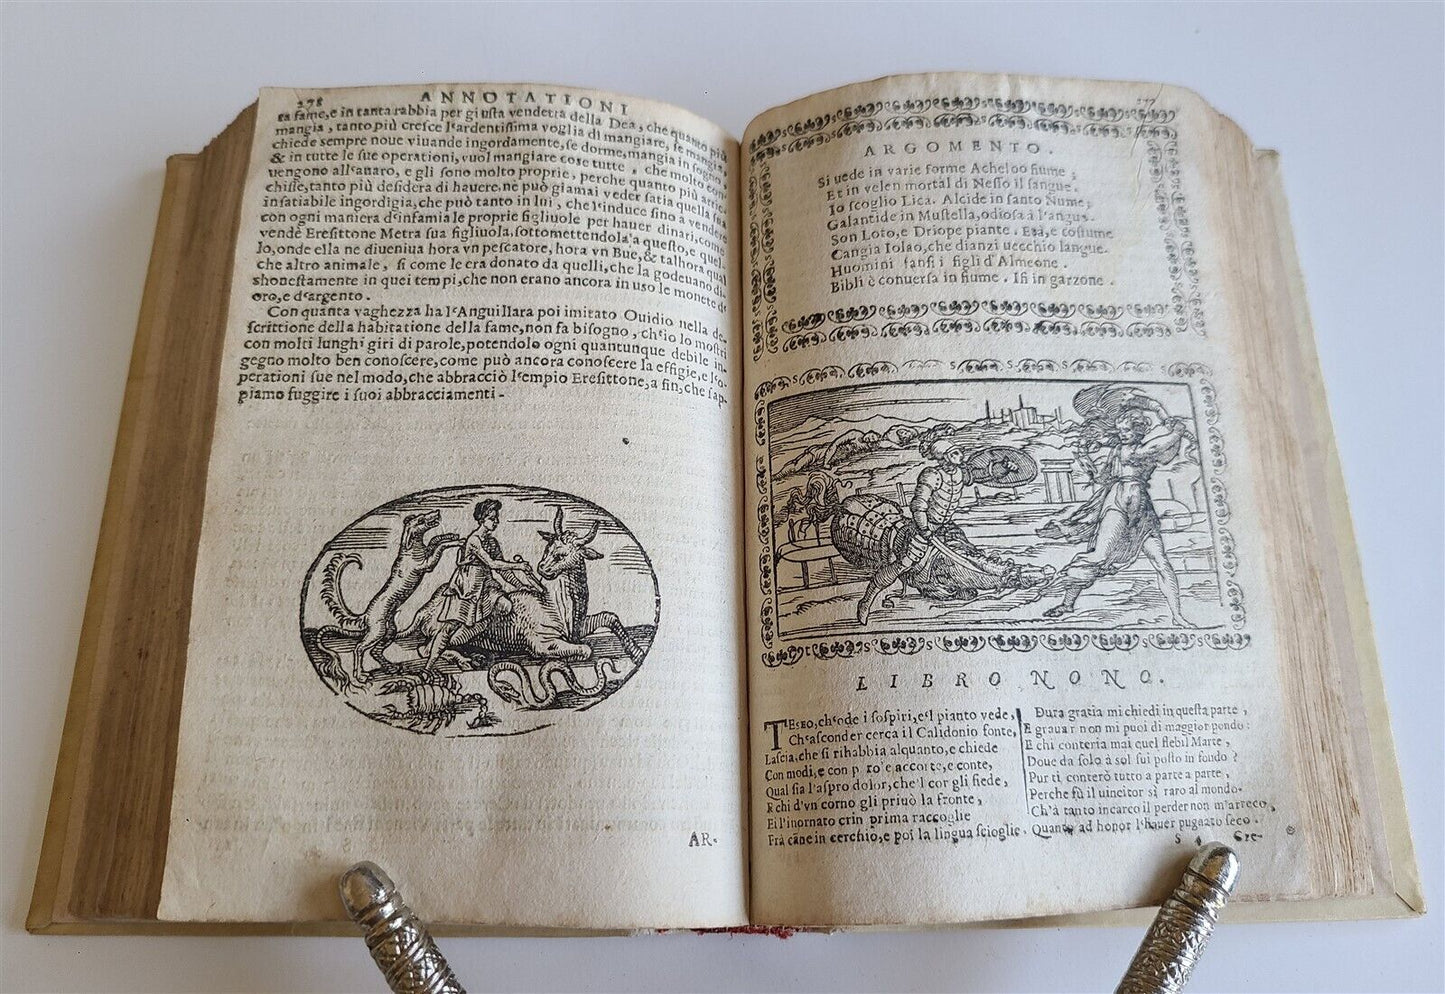 278
ANNOTATIONI
ta fame, e in tanta rabbia per giusta vendetta della Dea, che quanto più
mangia, tanto più cresce l'ardentissima voglia di mangiare, se mangia,
chiede sempre noue viuande ingordamente, se dorme, mangia in sogno,
& in tutte le sue operationi, vuol mangiare cose tutte, che molto con
uengono all'auaro, e gli sono molto proprie, perche quanto più arric-
chisse, tanto più desidera di hauere, ne può giamai veder satia quella sua
insatiabile ingordigia, che può tanto in lui, che l'induce sino à vendere
con ogni maniera d'infamia le proprie figliuole per hauer dinari, come
vendè Eresittone Metra sua figliuola, sottomettendola a questo, e quel-
lo, onde ella ne diueniua hora vn pescatore, hora vn Bue, & talhora qual
che altro animale, si come le era donato da quelli, che la godeuano di-
shonestamente in quei tempi, che non erano ancora in uso le monete d'
oro, e d'argento.
Con quanta vaghezza ha l'Anguillara poi imitato Ouidio nella de-
scrittione della habitatione della fame, non fa bisogno, ch'io lo mostri
con molti lunghi giri di parole, potendolo ogni quantunque debile in-
gegno molto ben conoscere, come può ancora conoscere la effigie, e l'o-
perationi sue nel modo, che abbracciò l'empio Eresittone, a fin, che sap-
piamo fuggire i suoi abbracciamenti.
AR-
ARGOMENTO.
Si uede in varie forme Acheloo fiume;
Et in velen mortal di Nesso il sangue.
Io scoglio Lica. Alcide in santo Nume;
Galantide in Mustella, odiosa à l'angue.
Son Loto, e Driope piante. Età, e costume
Cangia Iolao, che dianzi uecchio langue.
Huomini fansi i figli d'Almeone.
Bibli è conuersa in fiume. Isi in garzone.
LIBRO NONO.
TESEO, ch'ode i sospiri, e'l pianto vede,
Ch'asconder cerca il Calidonio fonte,
Lascia, che si rihabbia alquanto, e chiede
Con modi, e con p ro'e accorte, e conte,
Qual sia l'aspro dolor, che'l cor gli fiede,
E chi d'vn corno gli priuò la fronte,
Ei l'inornato crin prima raccoglie
Frà cãne in cerchio, e poi la lingua scioglie.
Dura gratia mi chiedi in questa parte,
E grauar non mi puoi di maggior pondo:
E chi conteria mai quel flebil Marte,
Doue da solo à sol fui posto in fondo?
Pur ti conterò tutto a parte a parte,
Perche fù il uincitor sì raro al mondo.
Ch'à tanto incarco il perder non m'arreco,
Quanto ad honor l'hauer pugnato seco.
S 4 Cre-